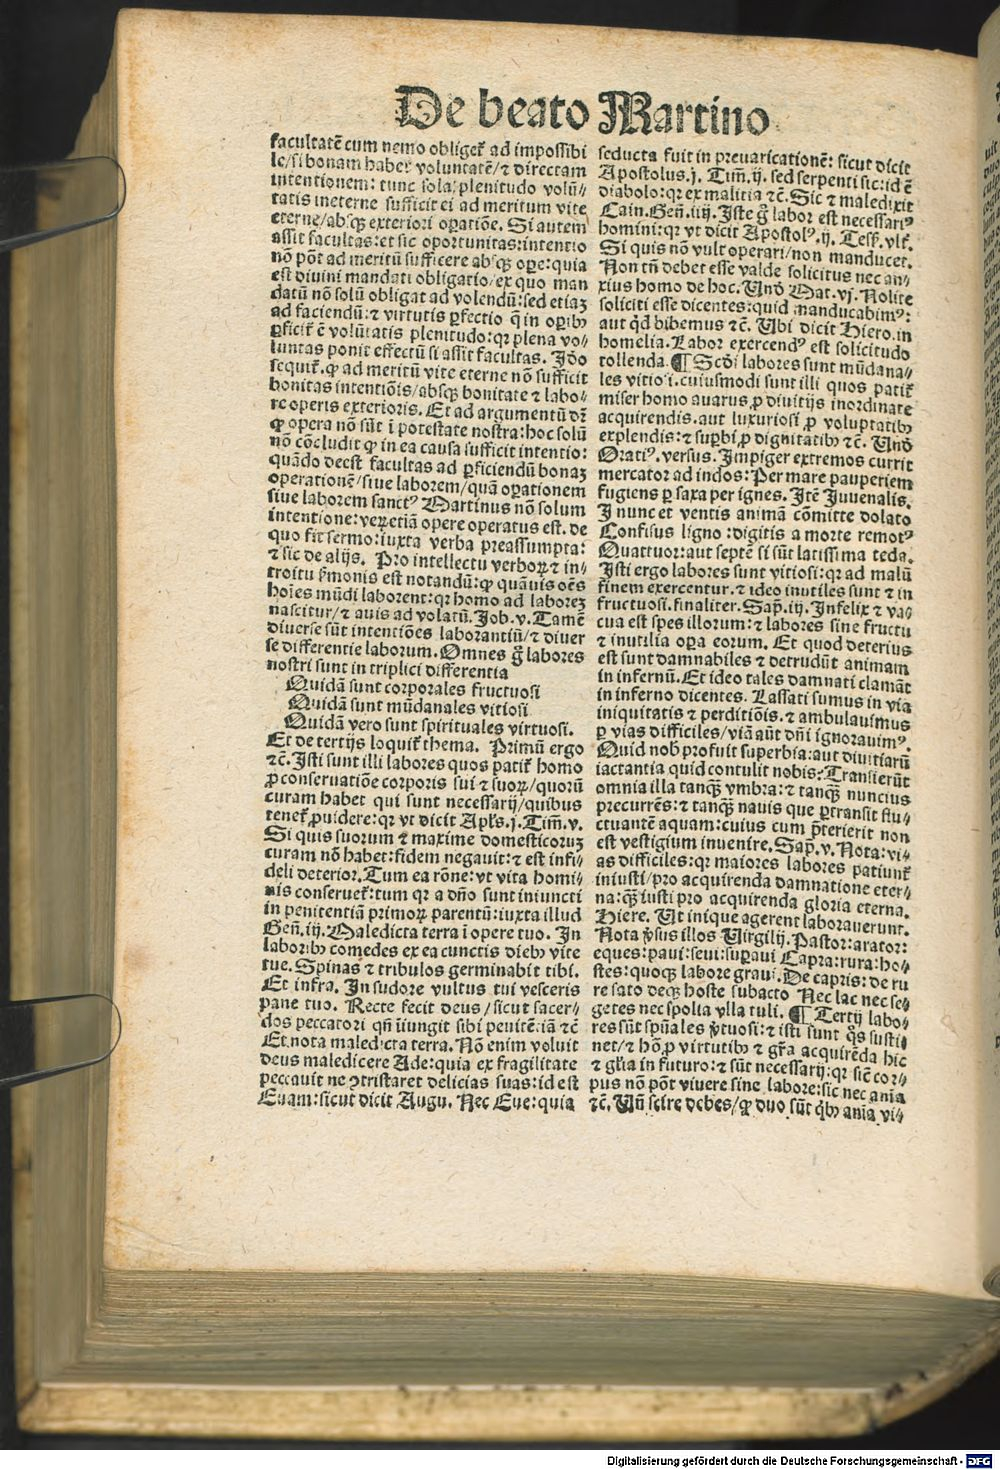 De beato Martino
facultatē cum nemo obliget᷑ ad impossibi
le/si bonam habet voluntatē/⁊ directam
intentionem: tunc sola plenitudo volū⸗
tatis ineterne sufficit ei ad meritum vite
eterne/absqꝫ exteriori oꝑatiōe. Si autem
assit facultas: et sic oportunitas: intentio
nō pōt ad meritū sufficere absqꝫ oꝑe: quia
est diuini mandati obligatio/ex quo man
datū nō solū obligat ad volendū: sed etiaꝫ
ad faciendū: ⁊ virtutis ꝑfectio q̄ in oꝑibꝰ
ꝑficit᷑ ē volūtatis plenitudo: qꝛ plena vo⸗
luntas ponit effectū si assit facultas. Idō
sequit᷑. ꝙ ad meritū vite eterne nō sufficit
bonitas intentiōis/absqꝫ bonitate ⁊ labo⸗
re operis exterioris. Et ad argumentū dꝛ̄
ꝙ opera nō sūt ī potestate nostra: hoc solū
nō cōcludit ꝙ in ea causa sufficit intentio:
quādo deest facultas ad ꝑficiendū bonaꝫ
operationē/siue laborem/quā oꝑationem
siue laborem sanctꝰ Martinus nō solum
intentione: veꝝ etiā opere operatus est. de
quo fit sermo: iuxta verba preassumpta:
⁊ sic de alijs. Pro intellectu verboꝝ ⁊ in⸗
troitu ẜmonis est notandū: ꝙ quāuis oēs
hoīes mūdi laborent: qꝛ homo ad laboreꝫ
nascitur/⁊ auis ad volatū. Job. v. Tamē
diuerse sūt intentiōes laborantiū/⁊ diuer
se differentie laborum. Omnes g̊ labores
nostri sunt in triplici differentia
Quidā sunt corporales fructuosi
Quidā sunt mūdanales vitiosi
Quidā vero sunt spirituales virtuosi.
Et de tertijs loquit᷑ thema. Primū ergo
⁊c̄. Isti sunt illi labores quos patit᷑ homo
ꝓ conseruatiōe corporis sui ⁊ suoꝝ/quorū
curam habet qui sunt necessarij/quibus
tenet᷑ ꝓuidere: qꝛ vt dicit Apl̄s. j. Tim̄. v.
Si quis suorum ⁊ maxime domesticoruꝫ
curam nō habet: fidem negauit: ⁊ est infi⸗
deli deterior. Tum ea rōne: vt vita homi⸗
nis conseruet᷑: tum qꝛ a dn̄o sunt iniuncti
in penitentiā primoꝝ parentū: iuxta illud
Gen̄. iij. Maledicta terra ī opere tuo. In
laboribꝰ comedes ex ea cunctis diebꝰ vite
tue. Spinas ⁊ tribulos germinabit tibi.
Et infra. In sudore vultus tui vesceris
pane tuo. Recte fecit deus/sicut sacer⸗
dos peccatori qn̄ iniungit sibi penitētiā ⁊c̄
Et nota maledicta terra. Nō enim voluit
deus maledicere Ade: quia ex fragilitate
peccauit ne ꝯtristaret delicias suas: id est
Euam: sicut dicit Augu. Nec Eue: quia
seducta fuit in preuaricationē: sicut dicit
Apostolus. j. Tim̄. ij. sed serpenti sic: id ē
diabolo: qꝛ ex malitia ⁊c̄. Sic ⁊ maledixit
Cain. Gen̄. iiij. Iste g̊ labor est necessariꝰ
homini: qꝛ vt dicit Apostolꝰ. ij. Tess̄. vlt᷑.
Si quis nō vult operari/non manducet.
Non tn̄ debet esse valde solicitus nec an⸗
xius homo de hoc. Vnd̄ Mat. vj. Nolite
soliciti esse dicentes: quid manducabimꝰ:
aut qd̄ bibemus ⁊c̄. Vbi dicit Hiero. in
homelia. Labor exercendꝰ est solicitudo
tollenda. ¶ Scd̄i labores sunt mūdana⸗
les vitiosi. cuiusmodi sunt illi quos patit᷑
miser homo auarus ꝓ diuitijs inordinate
acquirendis. aut luxuriosi ꝓ voluptatibꝰ
explendis: ⁊ suꝑbi ꝓ dignitatibꝰ ⁊c̄. Vnd̄
Oratiꝰ. versus. Impiger extremos currit
mercator ad indos: Per mare pauperiem
fugiens ꝑ saxa per ignes. Itē Juuenalis.
I nunc et ventis animā cōmitte dolato
Confisus ligno: digitis a morte remotꝰ
Quattuor: aut septē si sūt latissima teda.
Isti ergo labores sunt vitiosi: qꝛ ad malū
finem exercentur. ⁊ ideo inutiles sunt ⁊ in
fructuosi. finaliter. Sap̄. iij. Infelix ⁊ va⸗
cua est spes illorum: ⁊ labores sine fructu
⁊ inutilia oꝑa eorum. Et quod deterius
est sunt damnabiles ⁊ detrudūt animam
in infernū. Et ideo tales damnati clamāt
in inferno dicentes. Lassati sumus in via
iniquitatis ⁊ perditiōis. ⁊ ambulauimus
ꝑ vias difficiles/viā aūt dn̄i ignorauimꝰ.
Quid nobꝭ profuit superbia: aut diuitiarū
iactantia quid contulit nobis: Transierūt
omnia illa tanqꝫ̄ vmbra: ⁊ tanqꝫ̄ nuncius
precurrēs: ⁊ tanqꝫ̄ nauis que ꝑtransit flu⸗
ctuantē aquam: cuius cum p̄terierit non
est vestigium inuenire. Sap̄. v. Nota: vi⸗
as difficiles: qꝛ maiores labores patiunt᷑
iniusti/pro acquirenda damnatione eter⸗
na: qꝫ̄ iusti pro acquirenda gloria eterna.
Hiere. Vt inique agerent laborauerunt.
Nota v̓sus illos Virgilij. Pastor: arator:
eques: paui: seui: suꝑaui Capra: rura: ho⸗
stes: quoqꝫ labore graui. De capris: de ru
re sato deqꝫ hoste subacto Nec lac nec se⸗
getes nec spolia vlla tuli. ¶ Tertij labo⸗
res sūt spūales v̓tuosi: ⁊ isti sunt q̊s susti
net/⁊ hō ꝓ virtutibꝰ ⁊ gr̄a acquirēda hic
⁊ gl̄ia in futuro: ⁊ sūt necessarij: qꝛ sic cor⸗
pus nō pōt viuere sine labore: sic nec aīa
⁊c̄. Vn̄ scire debes/ꝙ duo sūt qͥbꝰ aīa vi⸗
Digitalisierung gefördert durch die Deutsche Forschungsgemeinschaft - DFG